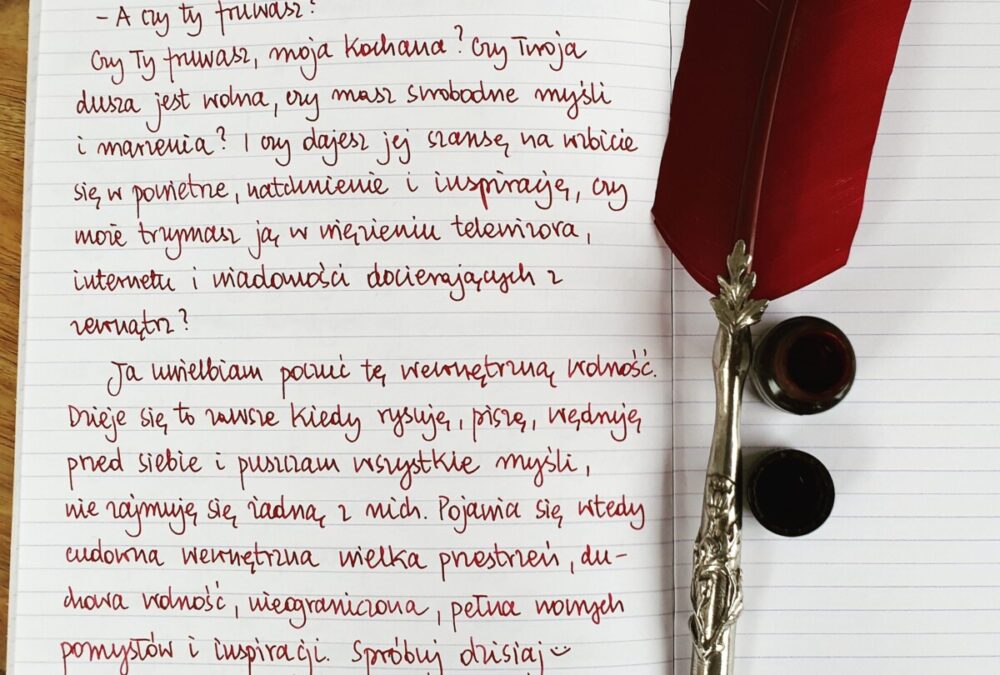 - A czy ty fruwasz?
Czy Ty fruwasz, moja Kochana? Czy Twoja
dusza jest wolna, czy masz swobodne myśli
i marzenia? I czy dajesz jej szansę na wzbicie
się w powietrze, natchnienie i inspirację, czy
może trzymasz ją w więzieniu telewizora,
internetu i wiadomości docierających z
zewnątrz?
Ja uwielbiam poczuć tę wewnętrzną wolność.
Dzieje się to zawsze kiedy rysuję, piszę, wędruję
przed siebie i puszczam wszystkie myśli,
nie zajmuję się żadną z nich. Pojawia się wtedy
cudowna wewnętrzna wielka przestrzeń, du-
chowa wolność, nieograniczona, pełna nowych
pomysłów i inspiracji. Spróbuj dzisiaj